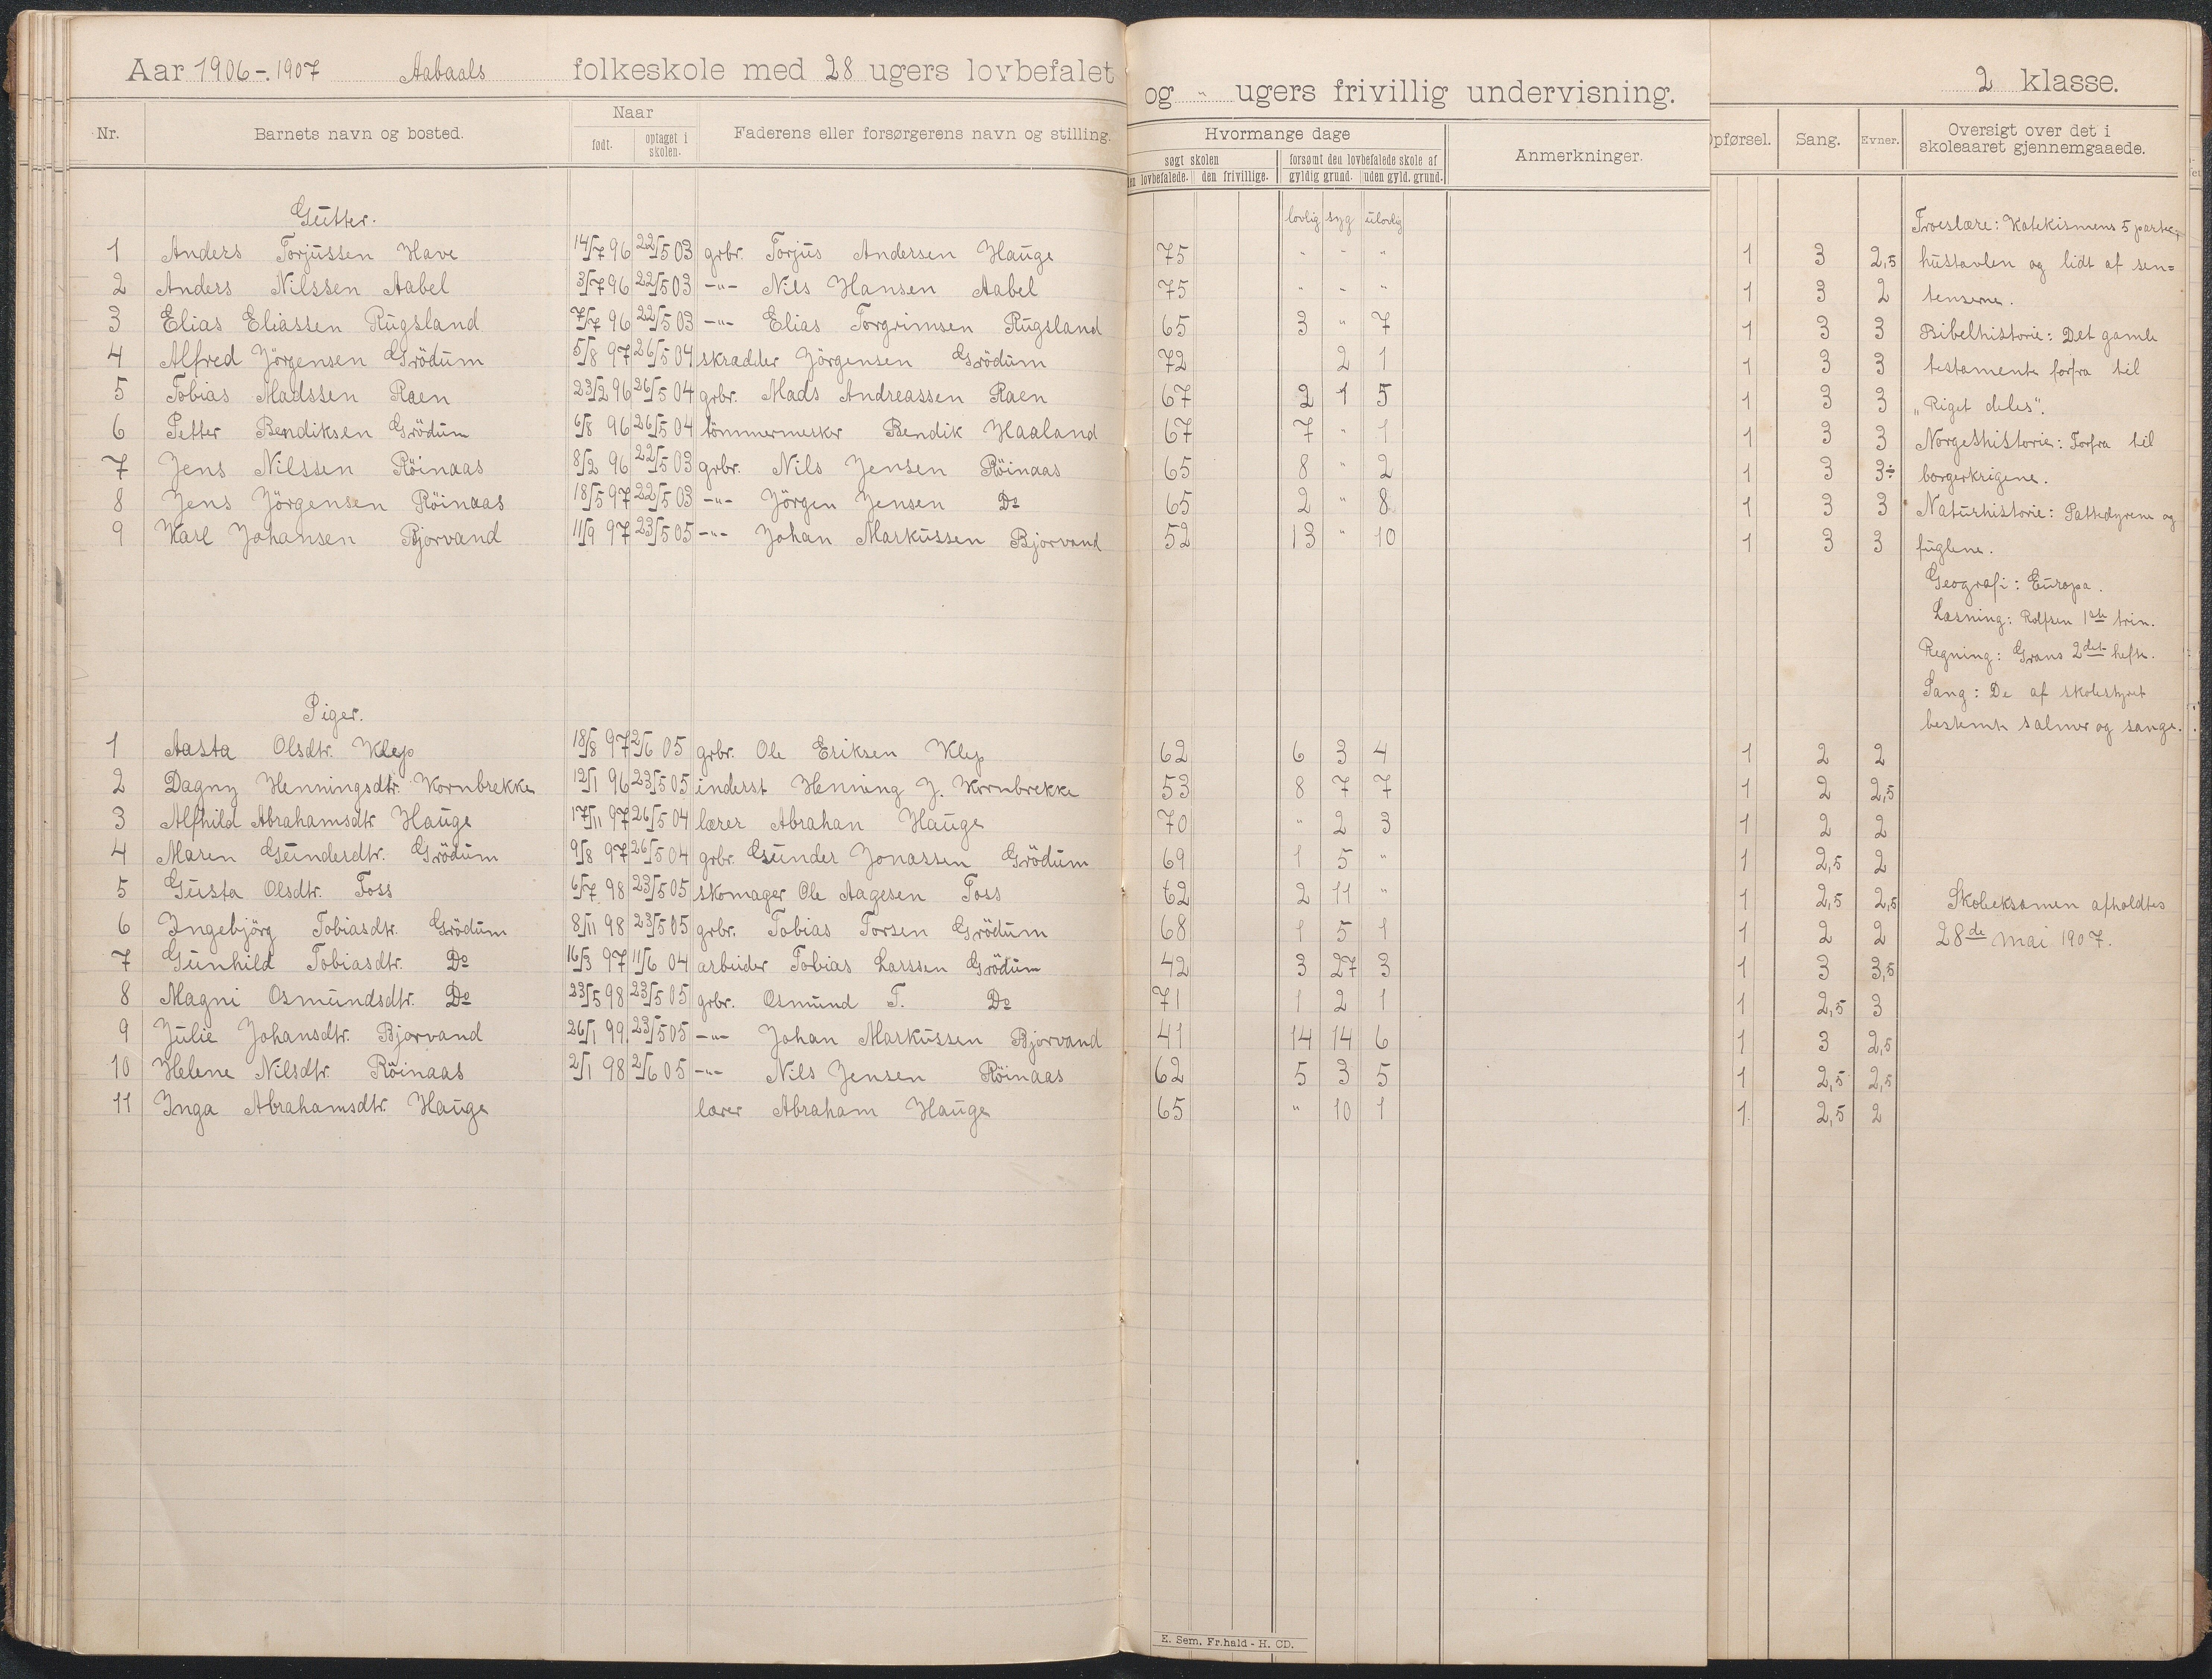 Aar 1906-1907 Aabaals folkeskole med 28 ugers lovbefalet og " ugers frivillig undervisning. 2 klasse.
Nr. Barnets navn og bosted. Naar født. optaget i skolen. Faderens eller forsørgerens navn og stilling. Hvormange dage søgt skolen den lovbefalede. den frivillige. forsømt den lovbefalede skole af gyldig grund. uden gyld. grund. Anmerkninger. Opførsel. Sang. Evner. Oversigt over det i skoleaaret gjennemgaaede.
Gutter. lovlig syg ulovlig
1 Anders Torjussen Have 14/7 96 22/5 03 grbr. Torjus Andersen Hauge 75 " " " 1 3 2,5
2 Anders Nilssen Aabel 3/7 96 22/5 03 -"- Nils Hansen Aabel 75 " " " 1 3 2
3 Elias Eliassen Rugsland 7/7 96 22/5 03 -"- Elias Torgrimsen Rugsland 65 3 " 7 1 3 3
4 Alfred Jörgensen Grödum 5/8 97 26/5 04 skradder Jörgensen Grödum 72 2 1 1 3 3
5 Tobias Madssen Raen 23/2 96 26/5 04 grbr. Mads Andreassen Raen 67 2 1 5 1 3 3
6 Petter Bendiksen Grödum 6/8 96 26/5 04 tömmermesker Bendik Haaland 67 7 " 1 1 3 3
7 Jens Nilssen Röinaas 8/2 96 22/5 03 grbr. Nils Jensen Röinaas 65 8 " 2 1 3 3÷
8 Jens Jörgensen Röinaas 18/5 97 22/5 03 -"- Jörgen Jensen Do 65 2 " 8 1 3 3
9 Karl Johansen Bjorvand 11/9 97 23/5 05 -"- Johan Markussen Bjorvand 52 13 " 10 1 3 3
Piger.
1 Aasta Olsdtr. Klep 18/8 97 2/6 05 grbr. Ole Eriksen Klep 62 6 3 4 1 2 2
2 Dagny Henningsdtr. Kornbrekke 12/1 96 23/5 05 inderst Henning J. Kornbrekke 53 8 7 7 1 2 2,5
3 Alfhild Abrahamsdtr. Hauge 17/11 97 26/5 04 lærer Abrahan Hauge 70 " 2 3 1 2 2
4 Maren Gunderdtr. Grödum 9/8 97 26/5 04 grbr. Gunder Jonassen Grödum 69 1 5 " 1 2,5 2
5 Gusta Olsdtr. Foss 6/7 98 23/5 05 skomager Ole Aagesen Foss 62 2 11 " 1 2,5 2,5
6 Ingebjörg Tobiasdtr. Grödum 8/11 98 23/5 05 grbr. Tobias Torsen Grödum 68 1 5 1 1 2 2
7 Gunhild Tobiasdtr. Do 16/3 97 11/6 04 arbeider Tobias Larssen Grödum 42 3 27 3 1 3 3,5
8 Magni Osmundsdtr. Do 23/5 98 23/5 05 grbr. Osmund T. Do 71 1 2 1 1 2,5 3
9 Julie Johansdtr. Bjorvand 26/1 99 23/5 05 -"- Johan Markussen Bjorvand 41 14 14 6 1 3 2,5
10 Helene Nilsdtr. Röinaas 2/1 98 2/6 05 -"- Nils Jensen Röinaas 62 5 3 5 1 2,5 2,5
11 Inga Abrahamsdtr. Hauge lærer Abraham Hauge 65 " 10 1 1. 2,5 2
Troeslære: Katekismens 5 parter,
hustavlen og lidt af sen=
tenserne.
Bibelhistorie: Det gamle
testamente forfra til
"Riget deles".
Norgeshistorie: Forfra til
borgerkrigene.
Naturhistorie: Pattedyrene og
fuglene.
Geografi: Europa.
Læsning: Rolfsen 1ste trin.
Regning: Grans 2det hefte.
Sang: De af skolestyret
bestemte salmer og sange.
Skoleeksamen afholdtes
28de mai 1907.
E. Sem. Fr.hald - H. CD.